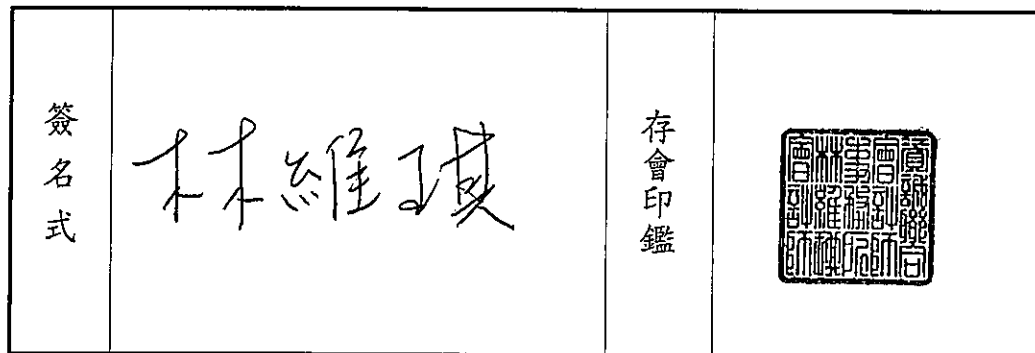 簽名式
林維琪
存會印鑑
資誠聯合
會計師
事務所
林維琪
會計師